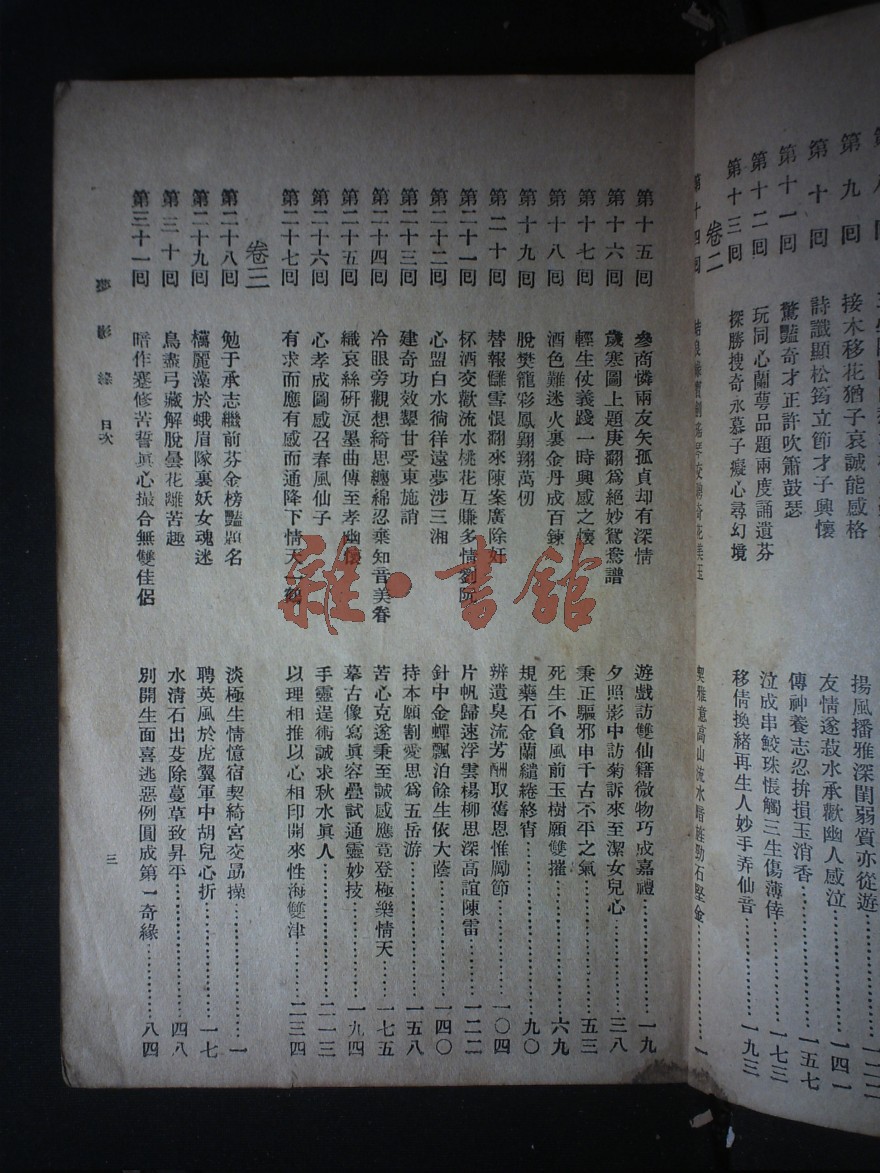 第九回 接木移花猶子哀誠能感格 揚風播雅深閨弱質亦從遊
第十回 詩讖顯松筠立節才子興懷 友情遂菽水承歡幽人感泣 一四一
第十一回 驚豔奇才正許吹簫鼓瑟 傳神養志忍拚損玉消香 一五七
第十二回 玩同心蘭萼品題兩度誦遺芬 泣成串鮫珠悵觸三生傷薄倖 一七三
第十三回 探勝搜奇永慕子癡心尋幻境 移倩換緒再生人妙手弄仙音 一九三
卷二
第十四回
第十五回 參商憐兩友矢孤貞却有深情 遊戲訪雙仙籍微物巧成嘉禮 一九
第十六回 歲寒圖上題庚翻爲絕妙鴛鴦譜 夕照影中訪菊訴來至潔女兒心 三八
第十七回 輕生仗義踐一時興感之懷 秉正驅邪申千古不平之氣 五三
第十八回 酒色難迷火裏金丹成百鍊 死生不負風前玉樹願雙摧 六九
第十九回 脫樊籠彩鳳翺翔萬仞 規藥石金蘭繾綣終宵 九〇
第二十回 替報讎雪恨翻來陳案廣除奸 辨遺臭流芳酬取舊恩惟勵節 一〇四
第二十一回 杯酒交歡流水桃花互賺多情劉阮 片帆歸速浮雲楊柳思深高誼陳雷 一二二
第二十二回 心盟白水徜徉遠夢涉三湘 針中金蟬飄泊餘生依大蔭 一四〇
第二十三回 建奇功效顰甘受東施誚 持本願割愛思爲五岳游 一五八
第二十四回 冷眼旁觀想綺思纏綿忍棄知音美眷 苦心克遂秉至誠感應竟登極樂情天 一七五
第二十五回 織哀絲研淚墨曲傳至孝幽懷 摹古像寫眞容疊試通靈妙技 一九四
第二十六回 心孝成圖感召春風仙子 手靈逞術誠求秋水眞人 二一三
第二十七回 有求而應有感而通降下情天一鶴 以理相推以心相印開來性海雙津 二三四
卷三
第二十八回 勉于承志繼前芬金榜豔題名 淡極生情憶宿契綺宮交勗操 一
第二十九回 摛麗藻於蛾眉隊裏妖女魂迷 聘英風於虎翼軍中胡兒心折 一七
第三十回 鳥盡弓藏解脫曇花離苦趣 水清石出芟除蔓草致昇平 四八
第三十一回 暗作蹇修苦誓眞心撮合無雙佳侶 別開生面喜逃惡例圓成第一奇緣 八四
夢影緣 目次 三
雜·書館